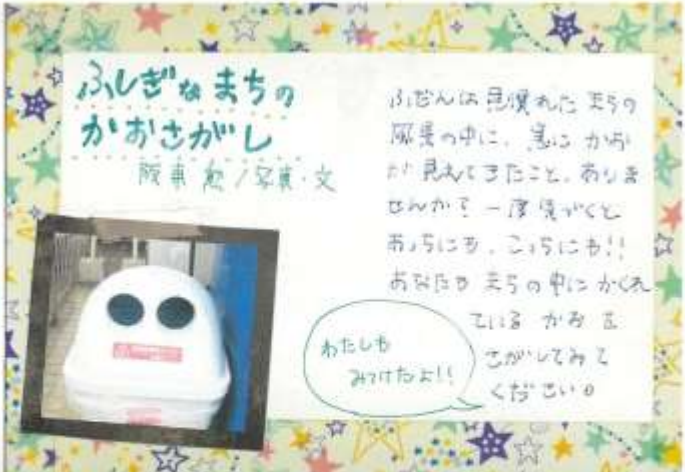 ふしぎな まちの
かおさがし
阪東 勲/写真・文
ふだんは 見慣れた まちの
風景の中に、急に かお
が 見えてきたこと、ありま
せんか? 一度 気づくと
あっちにも、こっちにも!!
あなたも まちの中に かくれ
ている かお を
さがしてみて
ください。
わたしも
みつけたよ!!